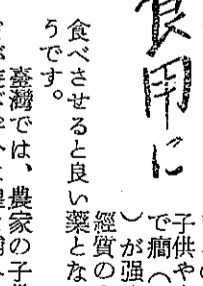 食用に
子供や
で癇（
）が强
經質の
食べさせると良い薬とな
うです。
臺灣では、農家の子供